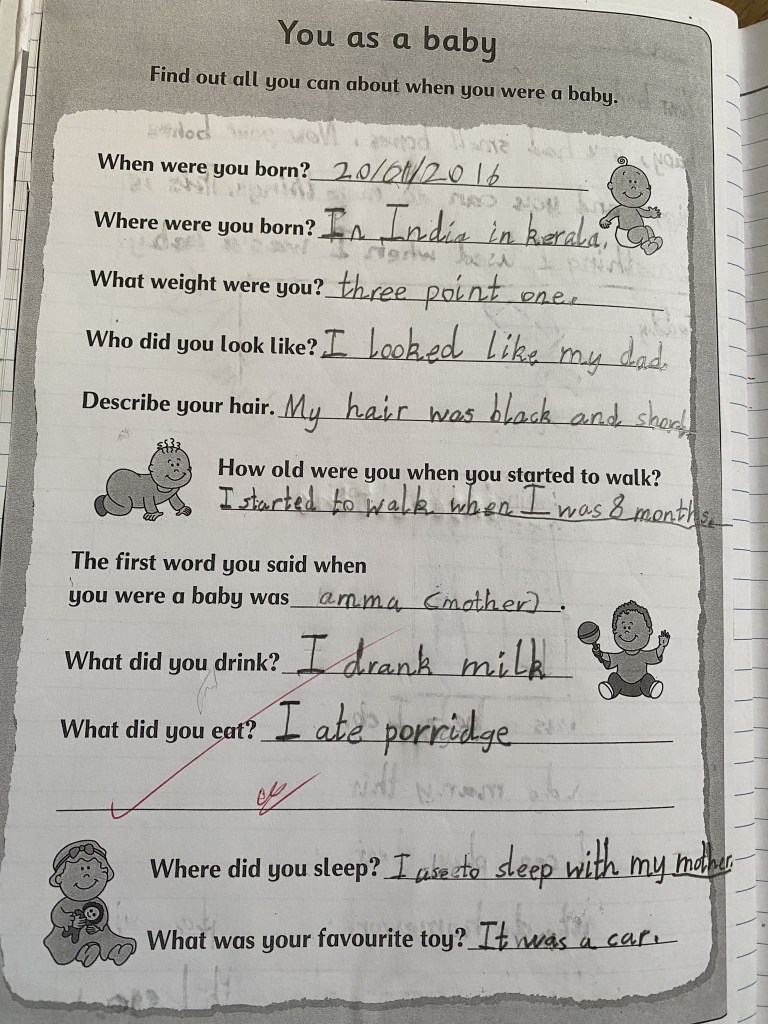 You as a baby
Find out all you can about when you were a baby.
When were you born? 20/01/2016
Where were you born? In India in kerala.
What weight were you? three point one.
Who did you look like? I looked like my dad.
Describe your hair. My hair was black and short.
How old were you when you started to walk?
I started to walk when I was 8 months.
The first word you said when
you were a baby was amma (mother).
What did you drink? I drank milk
What did you eat? I ate porridge
Where did you sleep? I use to sleep with my mother.
What was your favourite toy? It was a car.